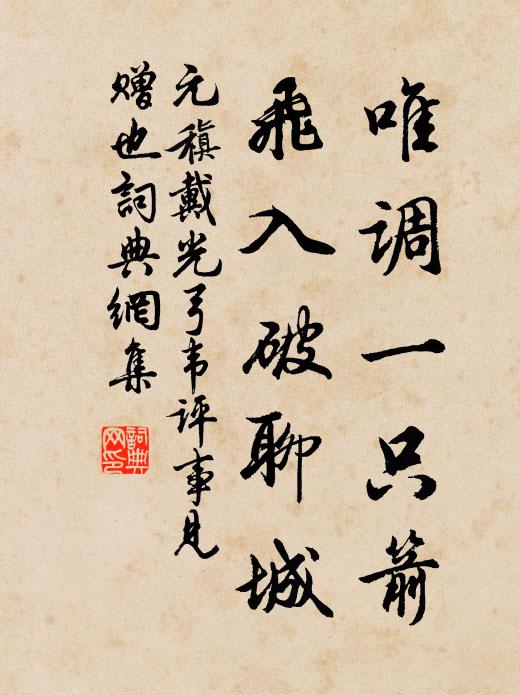 唯调一只箭
飞入破聊城
元稹戴光弓韦评事见
赠也詞典網集
詞典
网印